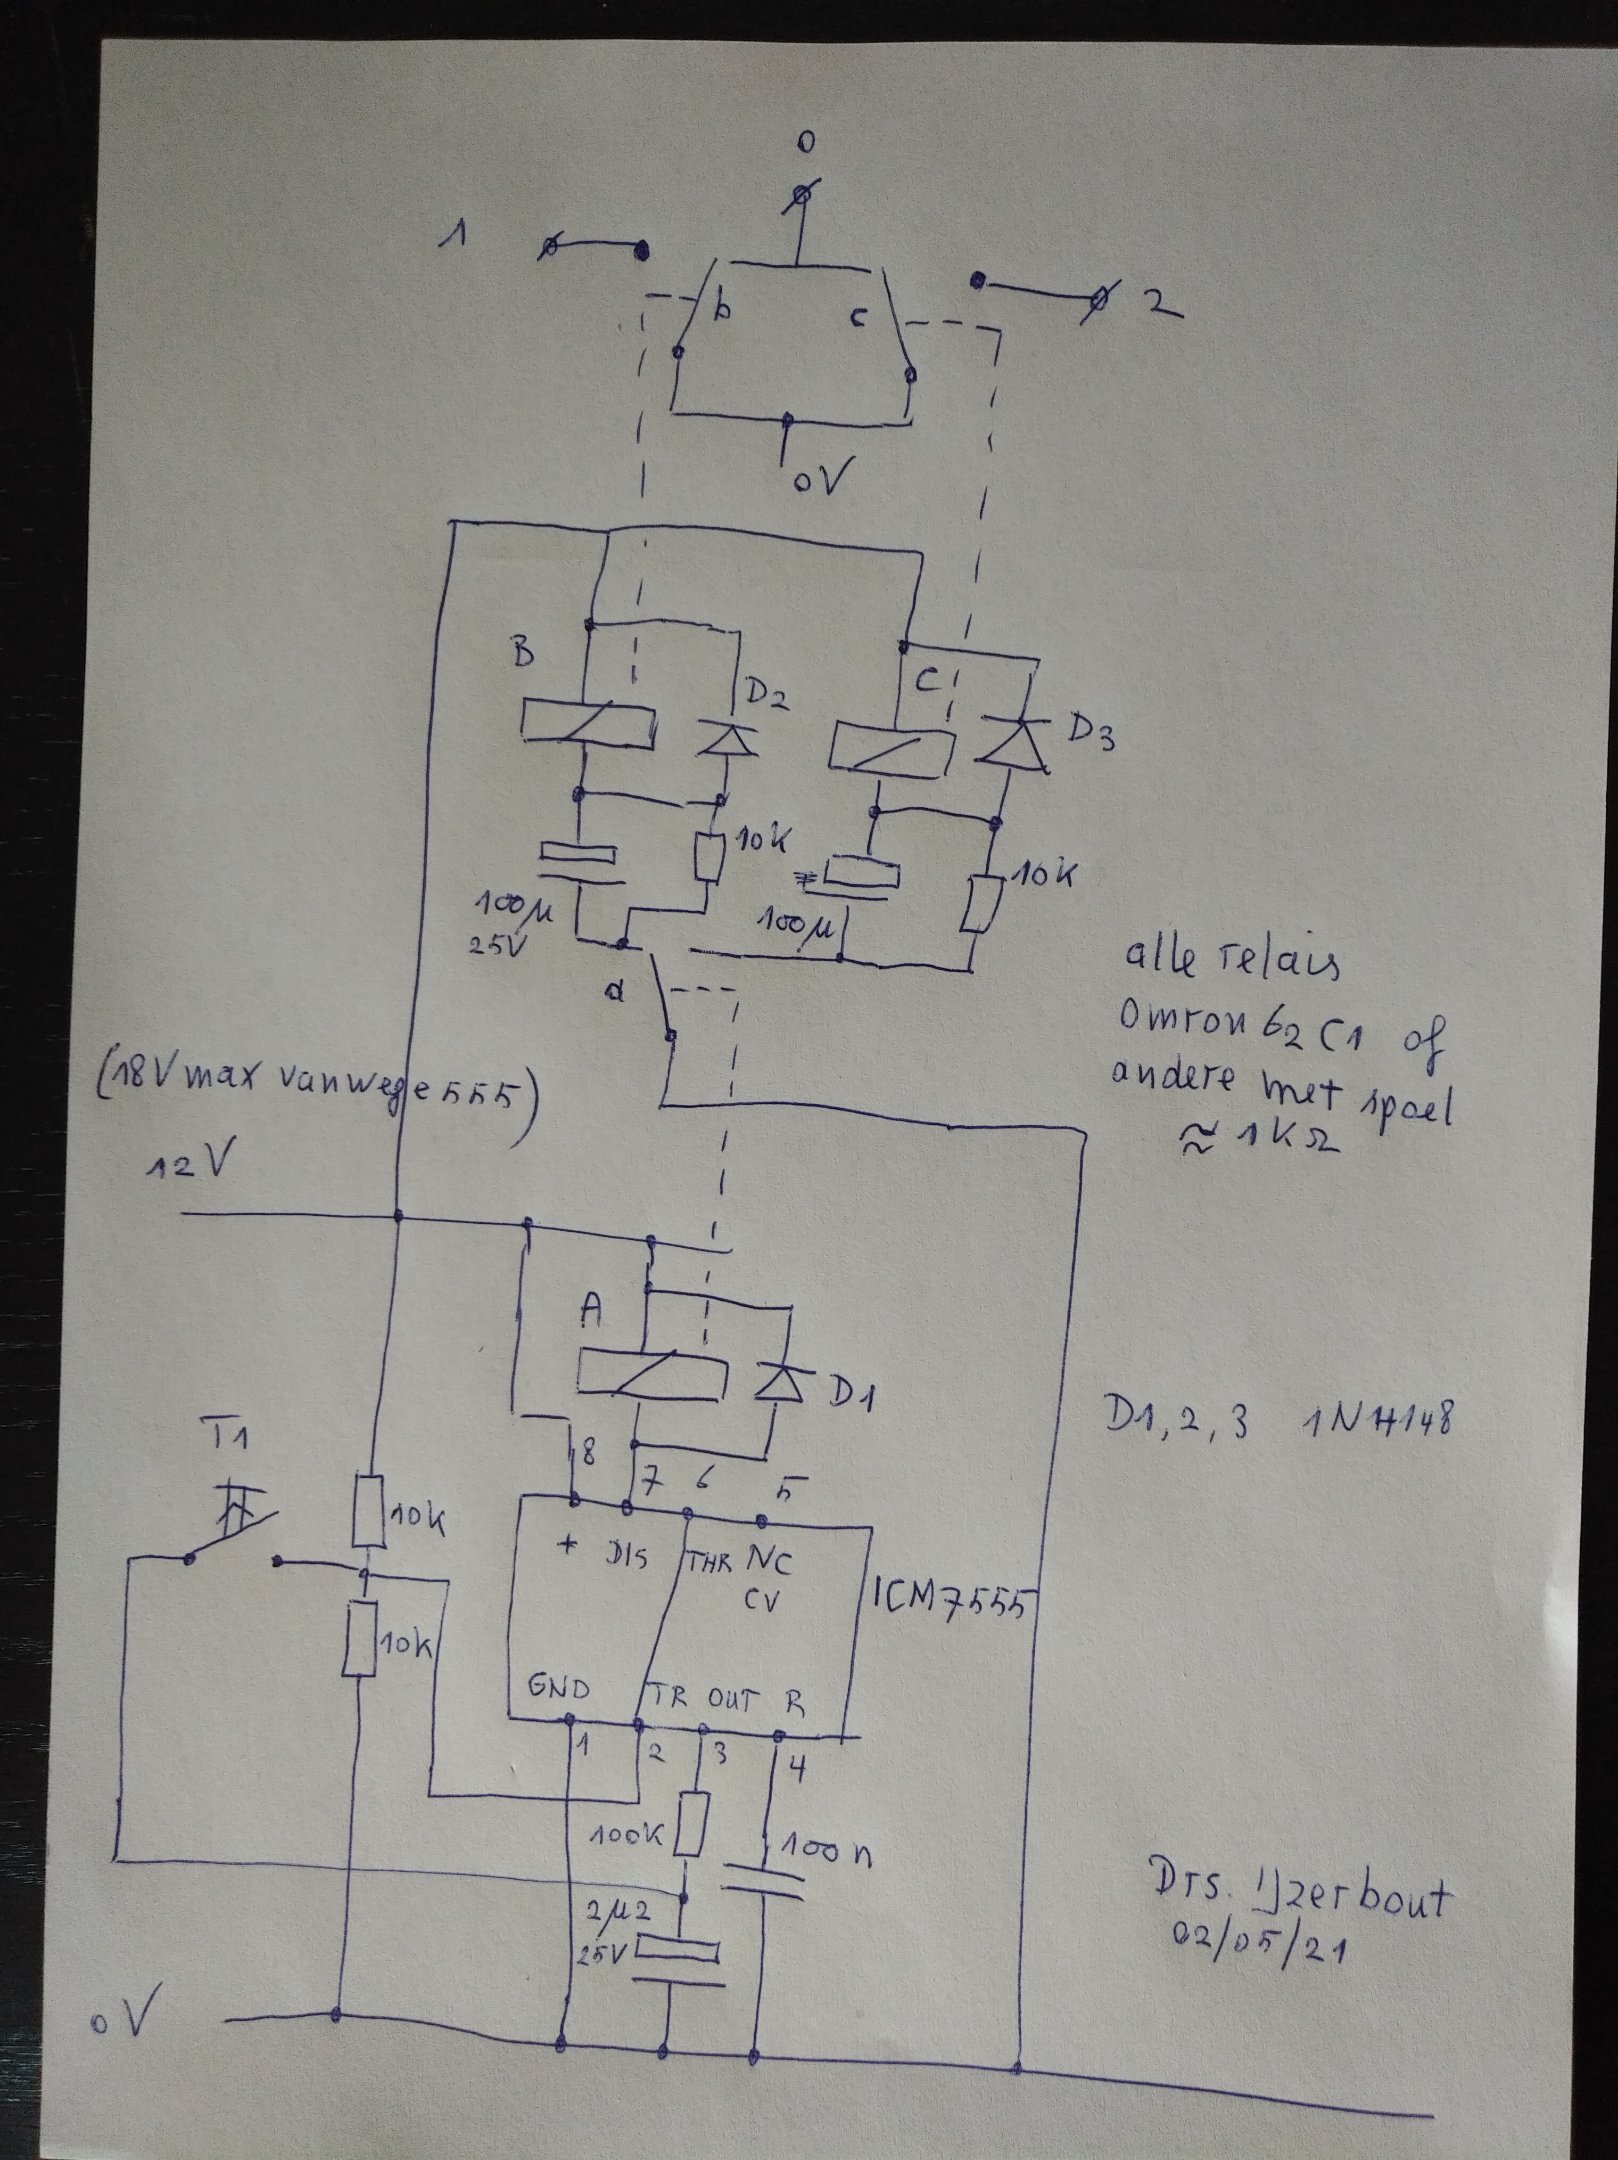 0
1
b
c
2
0V
B
D2
C
D3
10k
10k
100µ
25V
100µ
a
alle relais
Omron G2C1 of
andere met spoel
≈ 1KΩ
(18V max vanwege 555)
12V
A
D1
D1, 2, 3 1N4148
T1
8
7
6
5
10k
+
DIS
THR
NC
CV
ICM7555
10k
GND
TR
OUT
R
1
2
3
4
100k
100n
2µ2
25V
Drs. IJzerbout
02/05/21
0V